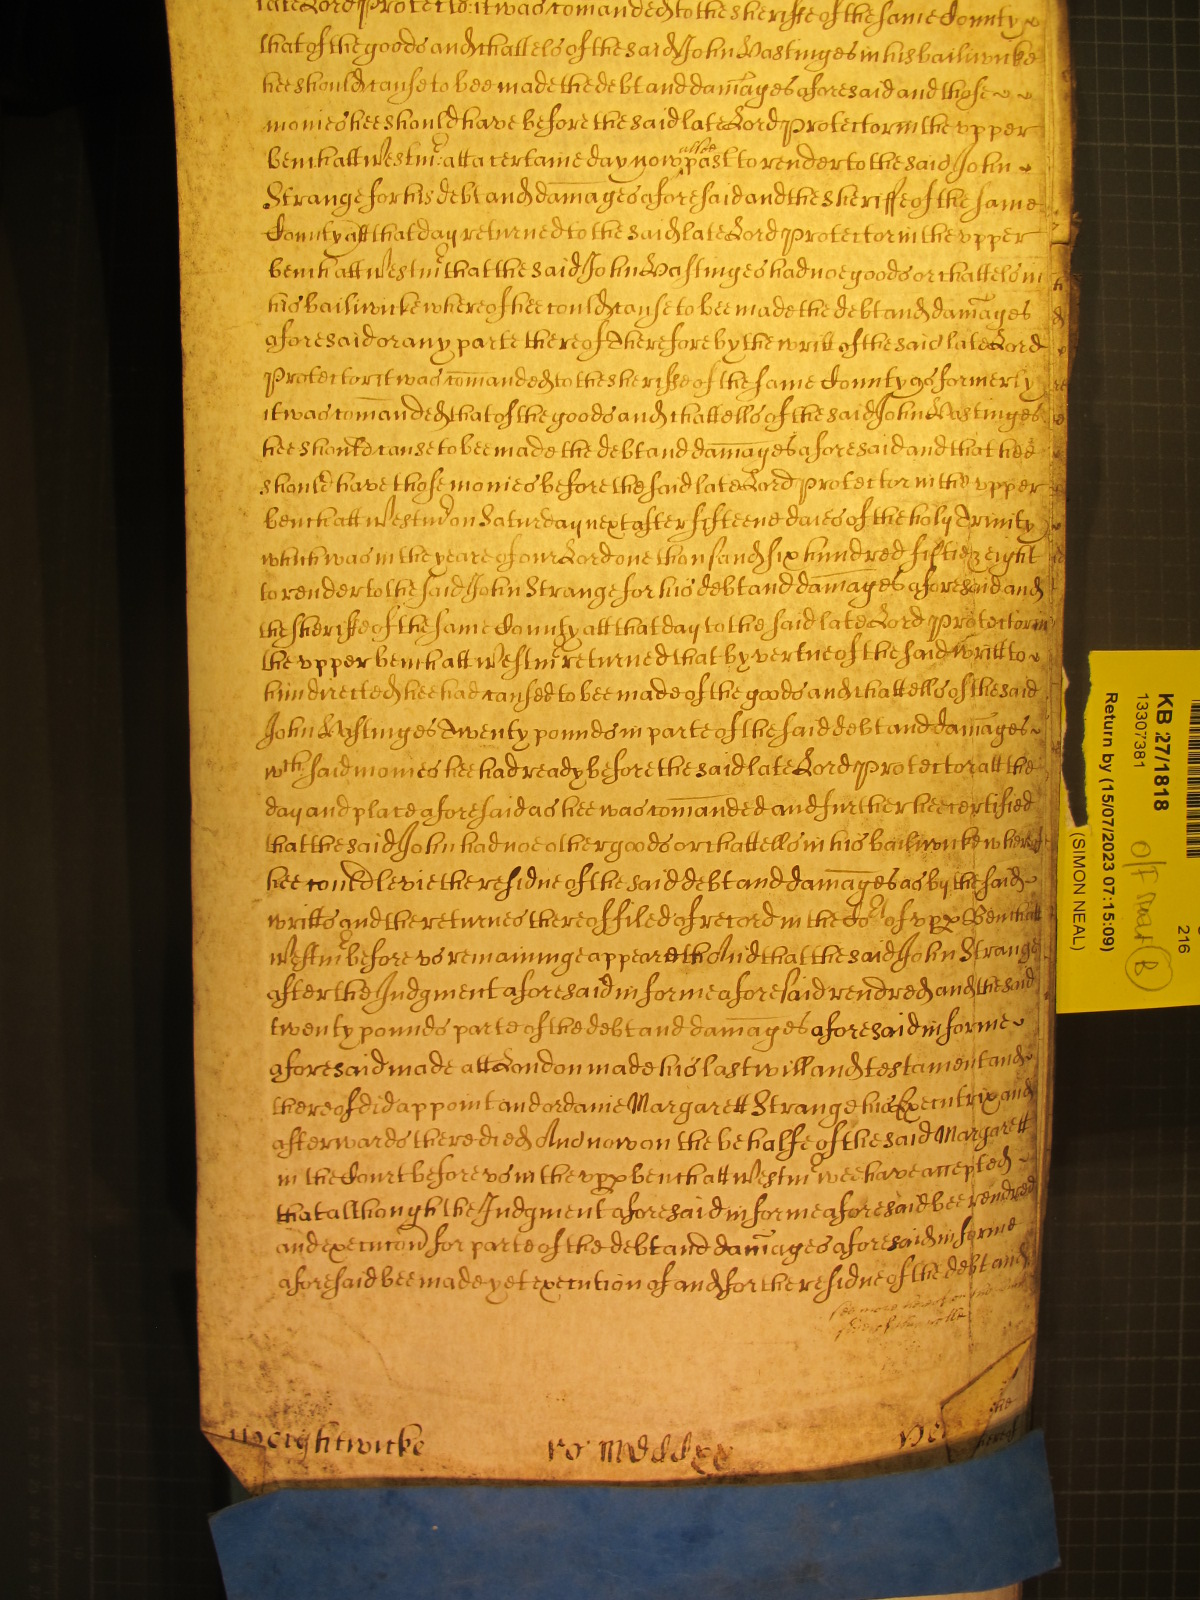 late Lord Protector it was comanded to the sheriffe of the same County
that of the goods and chattels of the said John Hastinges in his bailiwicke
hee should cause to bee made the debt and damages aforesaid and those
monies hee should have before the said late Lord Protector in the upper
bench att Westmr att a certaine day now past to render to the said John
Strange for his debt and damages aforesaid and the sheriffe of the same
County att that day returned to the said late Lord Protector in the upper
bench att Westmr that the said John Hastinges had noe goods or chattels in
his bailiwicke whereof hee could cause to bee made the debt and damages
aforesaid or any parte thereof Therefore by the writt of the said late Lord
Protector it was comanded to the sheriffe of the same County as formerly
it was comanded that of the goods and chattells of the said John Hastinges
hee should cause to bee made the debt and damages aforesaid and that hee
should have those monies before the said late Lord Protector in the upper
bench att Westmr on Saturday next after fifteene daies of the holy Trinity
which was in the yeare of our Lord one thousand six hundred fiftie eight
to render to the said John Strange for his debt and damages aforesaid and
the sheriffe of the same County att that day to the said late Lord Protector in
the upper bench att Westmr returned that by vertue of the said writt to
him directed hee had caused to bee made of the goods and chattells of the said
John Hastinges Twenty pounds in parte of the said debt and damages
wch said monies hee had ready before the said late Lord Protector att the
day and place aforesaid as hee was comanded and further hee certified
that the said John had noe other goods or chattells in his bailiwicke whereof
hee could levie the residue of the said debt and damages as by the said
writts and the returnes thereof filed of record in the Cot of upp Bench att
Westmr before us remaininge appeareth And that the said John Strange
after the Judgment aforesaid in forme aforesaid rendred and the said
twenty pounds parte of the debt and damages aforesaid in forme
aforesaid made att London made his last will and testament and
thereof did appoint and ordaine Margarett Strange his Executrix and
afterwards there died And now on the behalfe of the said Margarett
in the Court before us in the upp bench att Westmr wee have accepted
that although the Judgment aforesaid in forme aforesaid bee rendred
and execucon for parte of the debt and damages aforesaid in forme
aforesaid bee made yet execution of and for the residue of the debt and
Weightwicke
ro Mdddxx
KB 27/1818
13307381
Return by (15/07/2023 07:15:09)
(SIMON NEAL)
216